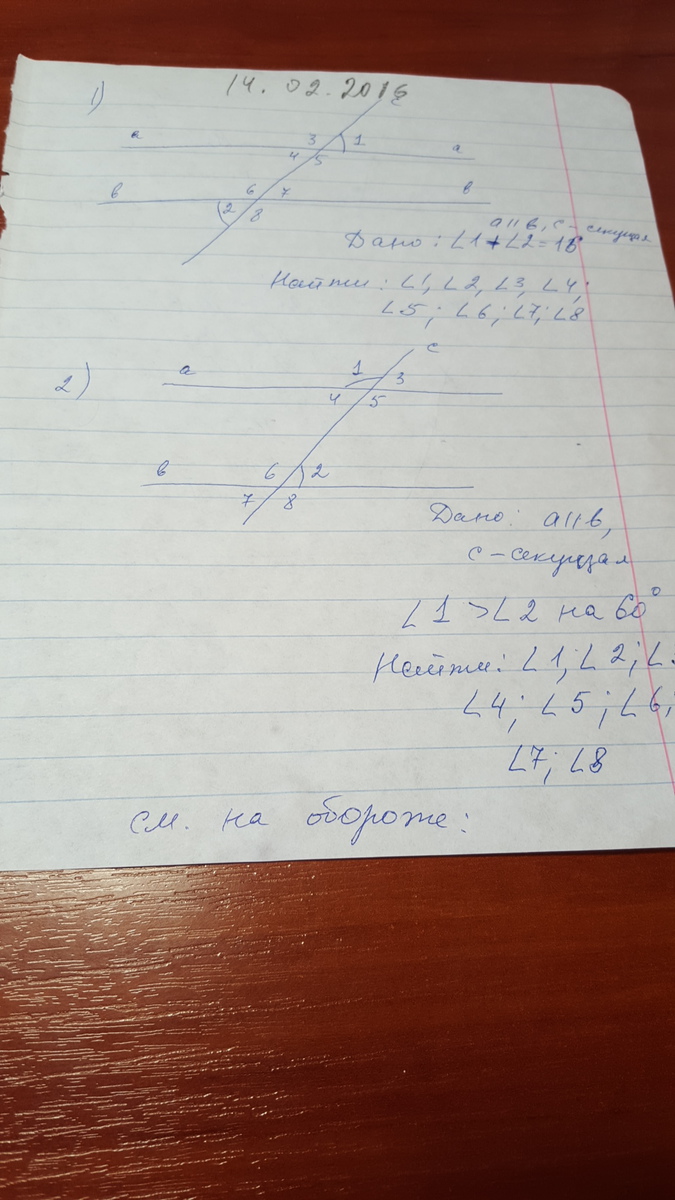 14. 02. 2016
1)
c
a 3 1 a
4 5
в 6 7 в
2 8
a||в, c - секущая
Дано: ∠1+∠2=16
Найти: ∠1, ∠2, ∠3, ∠4;
∠5; ∠6; ∠7; ∠8
2)
c
a 1 3
4 5
в 6 2
7 8
Дано: a||в,
c - секущая
∠1 > ∠2 на 60°
Найти: ∠1; ∠2; ∠
∠4; ∠5; ∠6;
∠7; ∠8
см. на обороже: